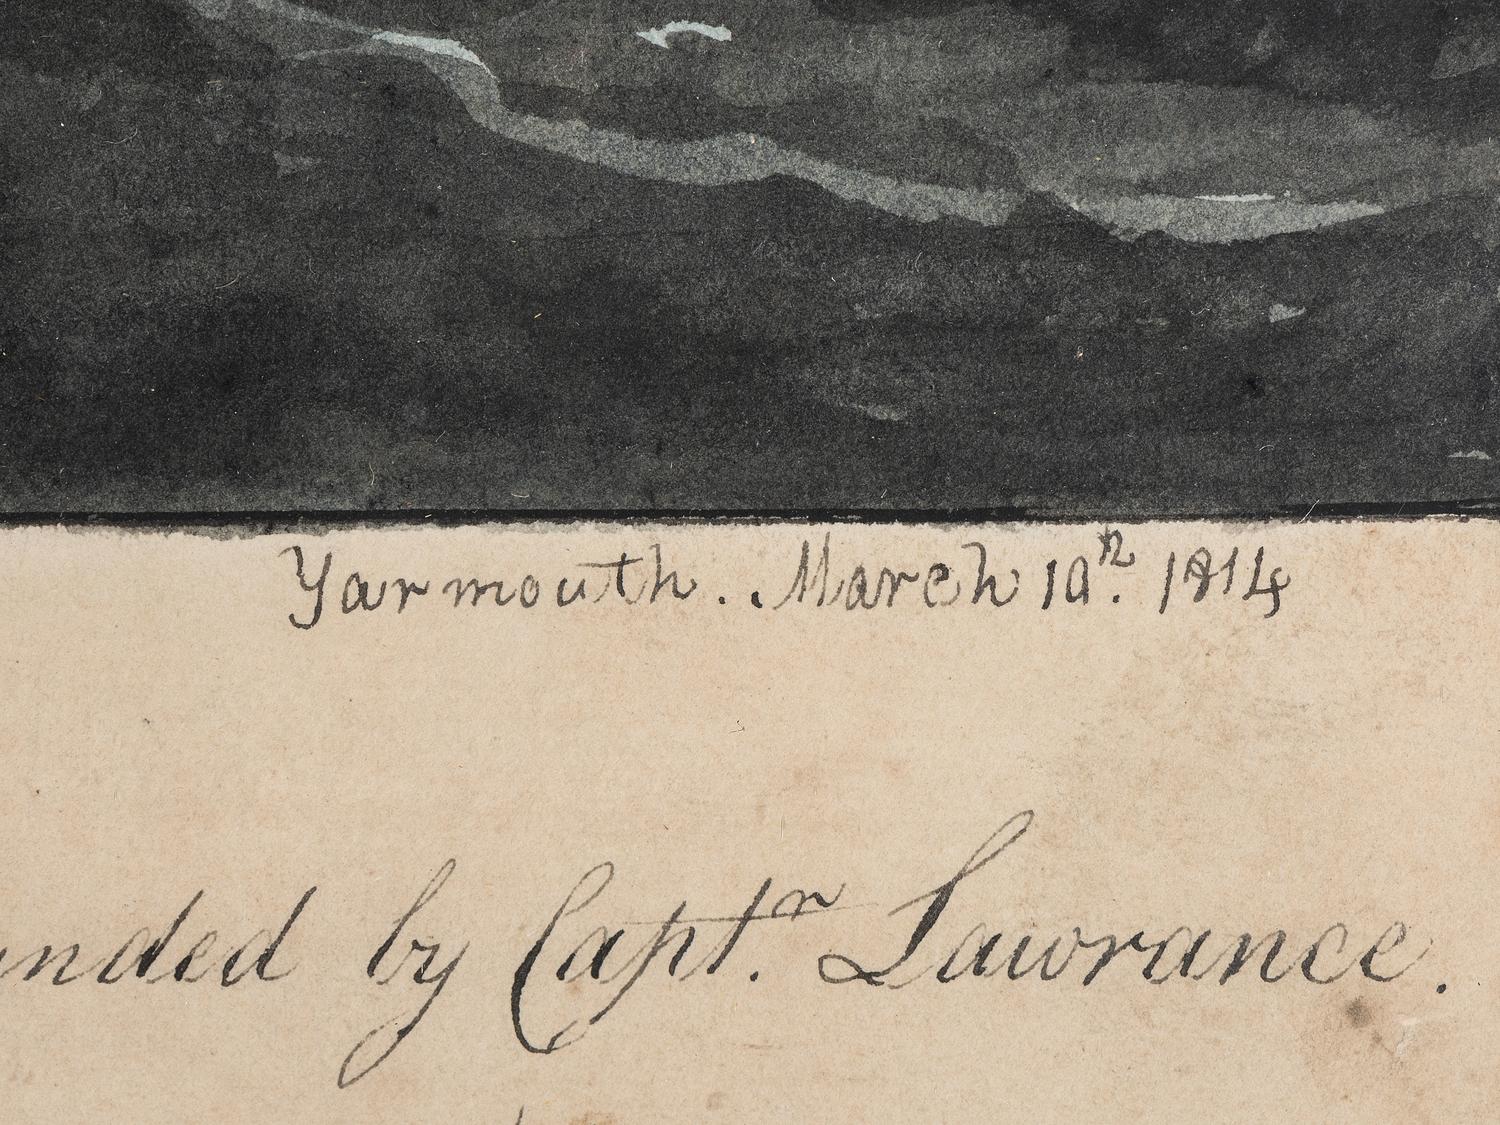 Yarmouth. . March 10th. 1814
nded by Captr. Lawrance.